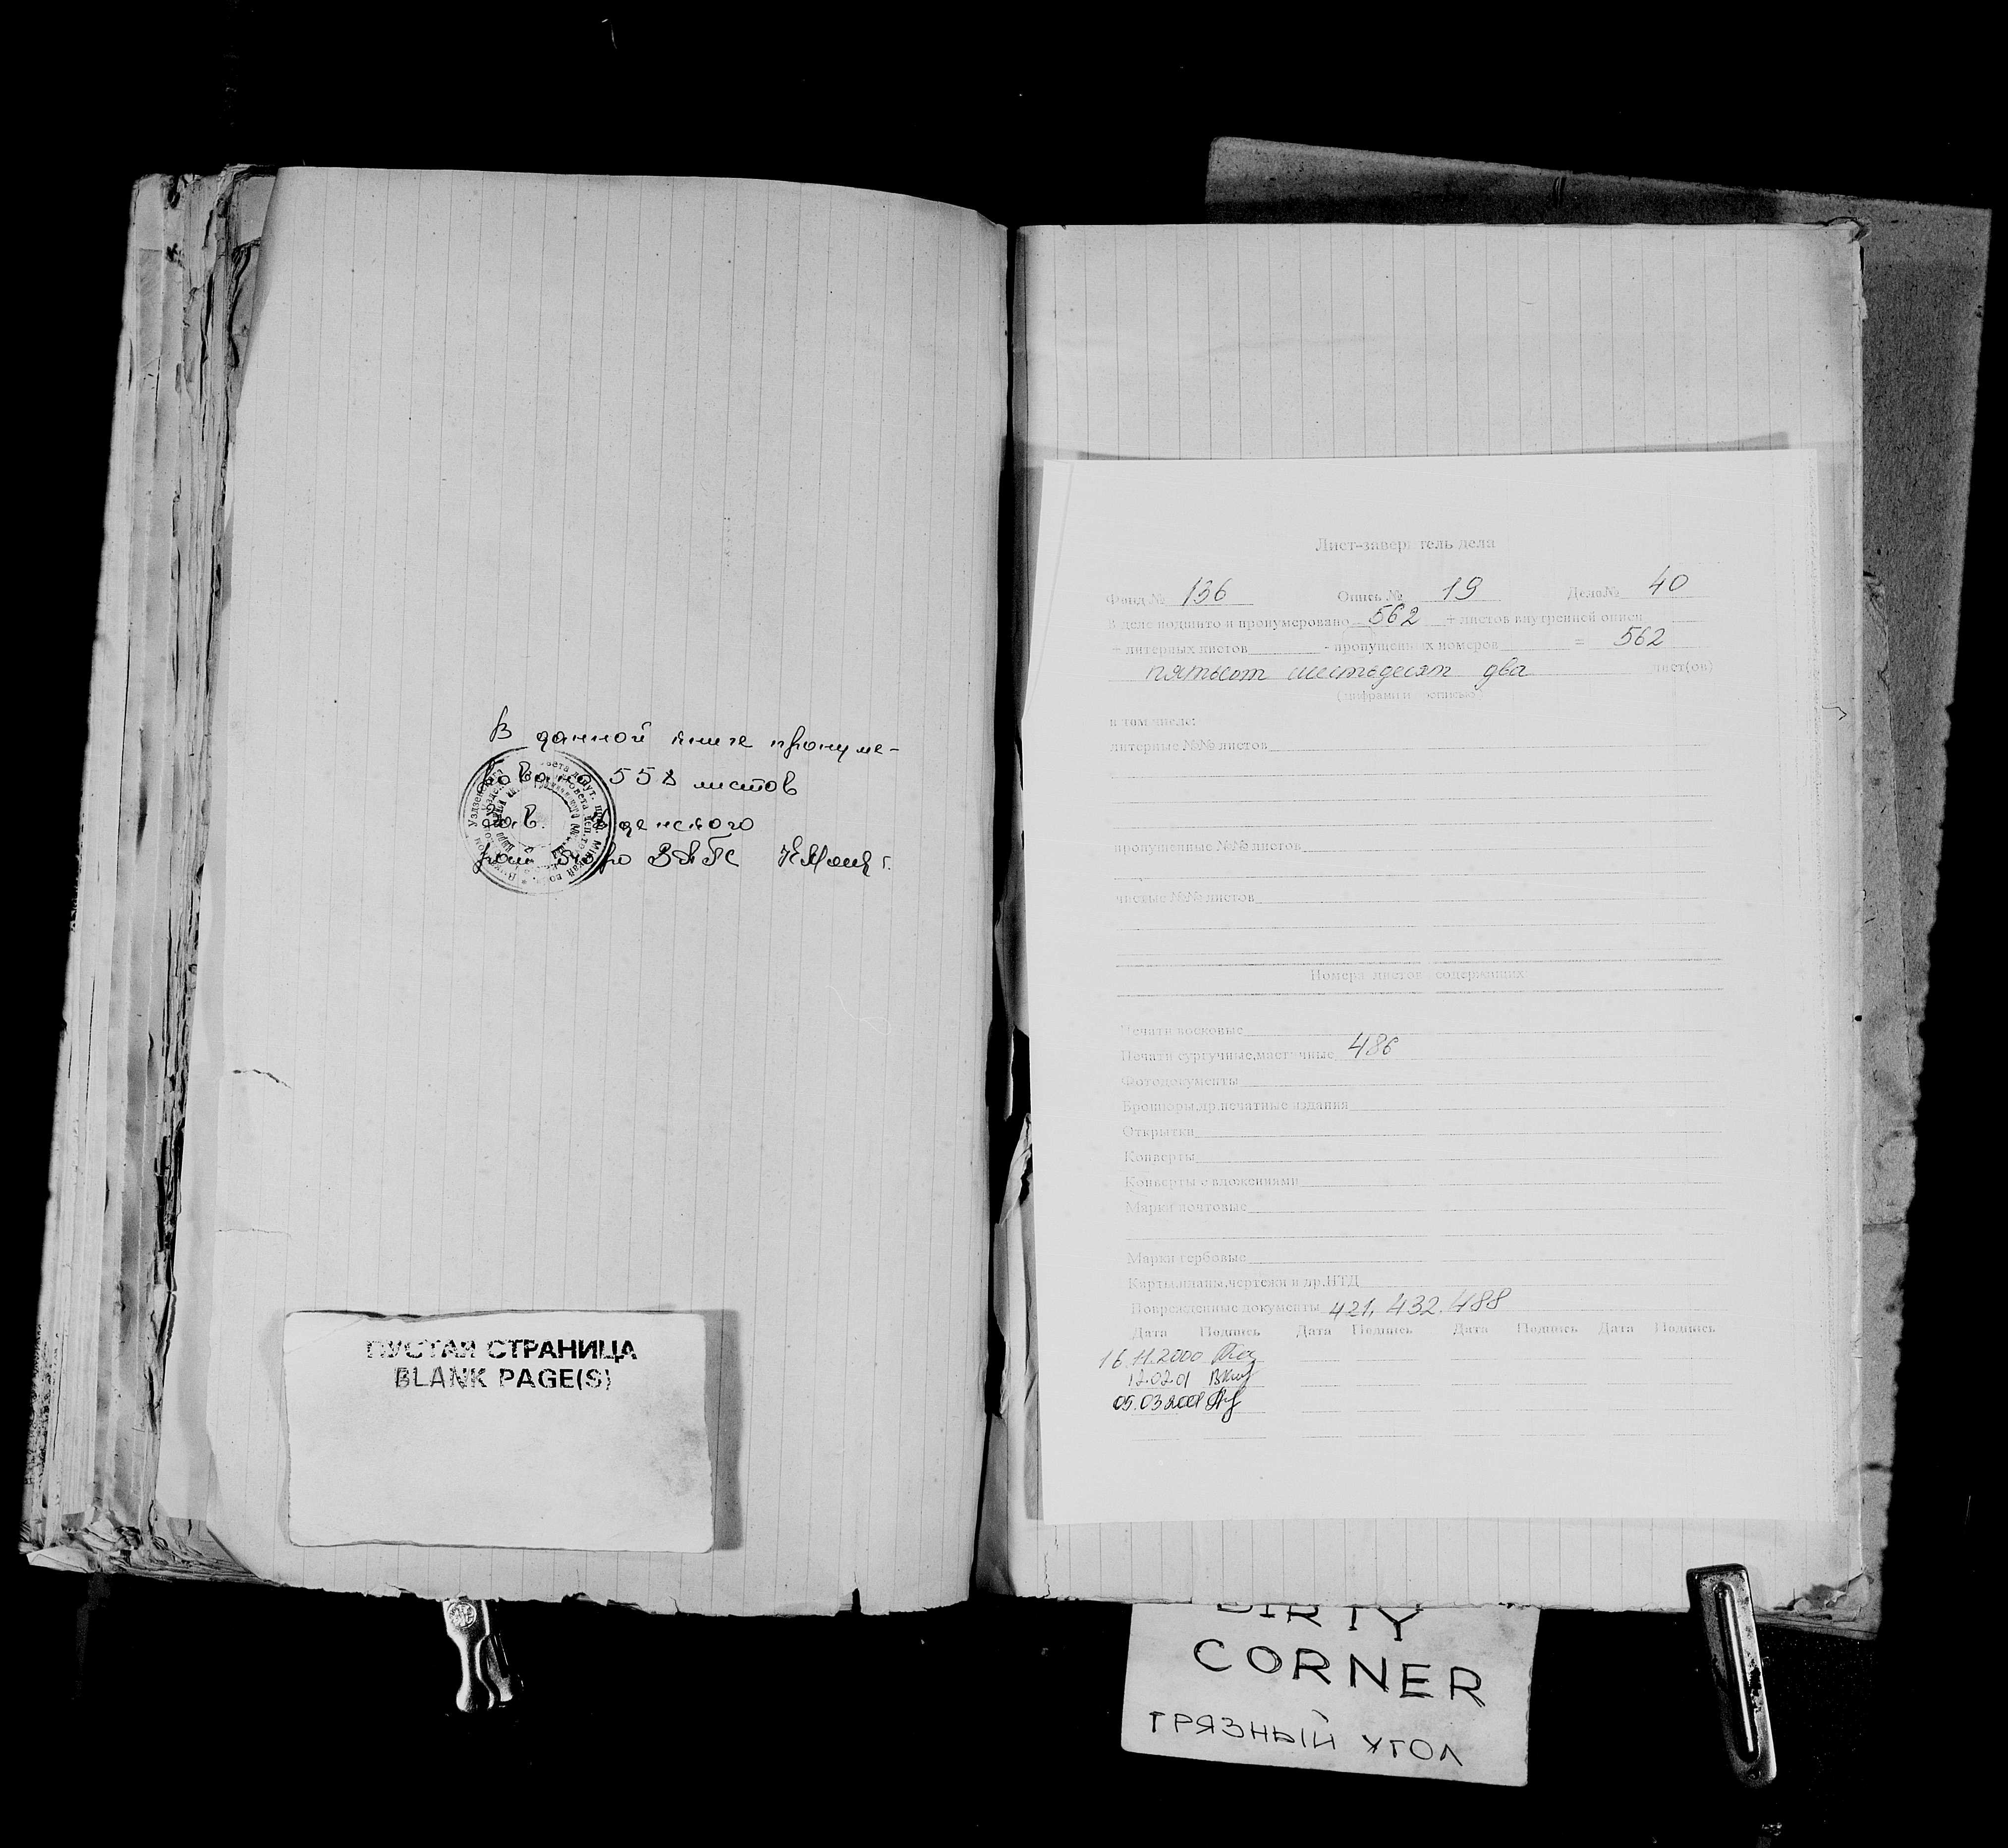 В данной книге пронуме-
ровано 558 листов
зав. Узденского
рай бюро ЗАГС
ПУСТАЯ СТРАНИЦА
BLANK PAGE(S)
Лист-заверитель дела
Фонд № 136 Опись № 19 Дело№ 40
В деле подшито и пронумеровано 562 + листов внутренней описи
+ литерных листов - пропущенных номеров = 562
пятьсот шестьдесят два лист(ов)
(цифрами и прописью)
в том числе:
литерные №№ листов
пропущенные №№ листов
чистые №№ листов
Номера листов содержащих
Печати восковые
Печати сургучные,мастичные 486
Фотодокументы
Брошюры,др.печатные издания
Открытки
Конверты
Конверты с вложениями
Марки почтовые
Марки гербовые
Карты,планы,чертежи и др.НТД
Поврежденные документы 421, 432, 488
Дата Подпись Дата Подпись Дата Подпись Дата Подпись
16.11.2000
12.02.01
05.03.2001
DIRTY
CORNER
ГРЯЗНЫЙ УГОЛ